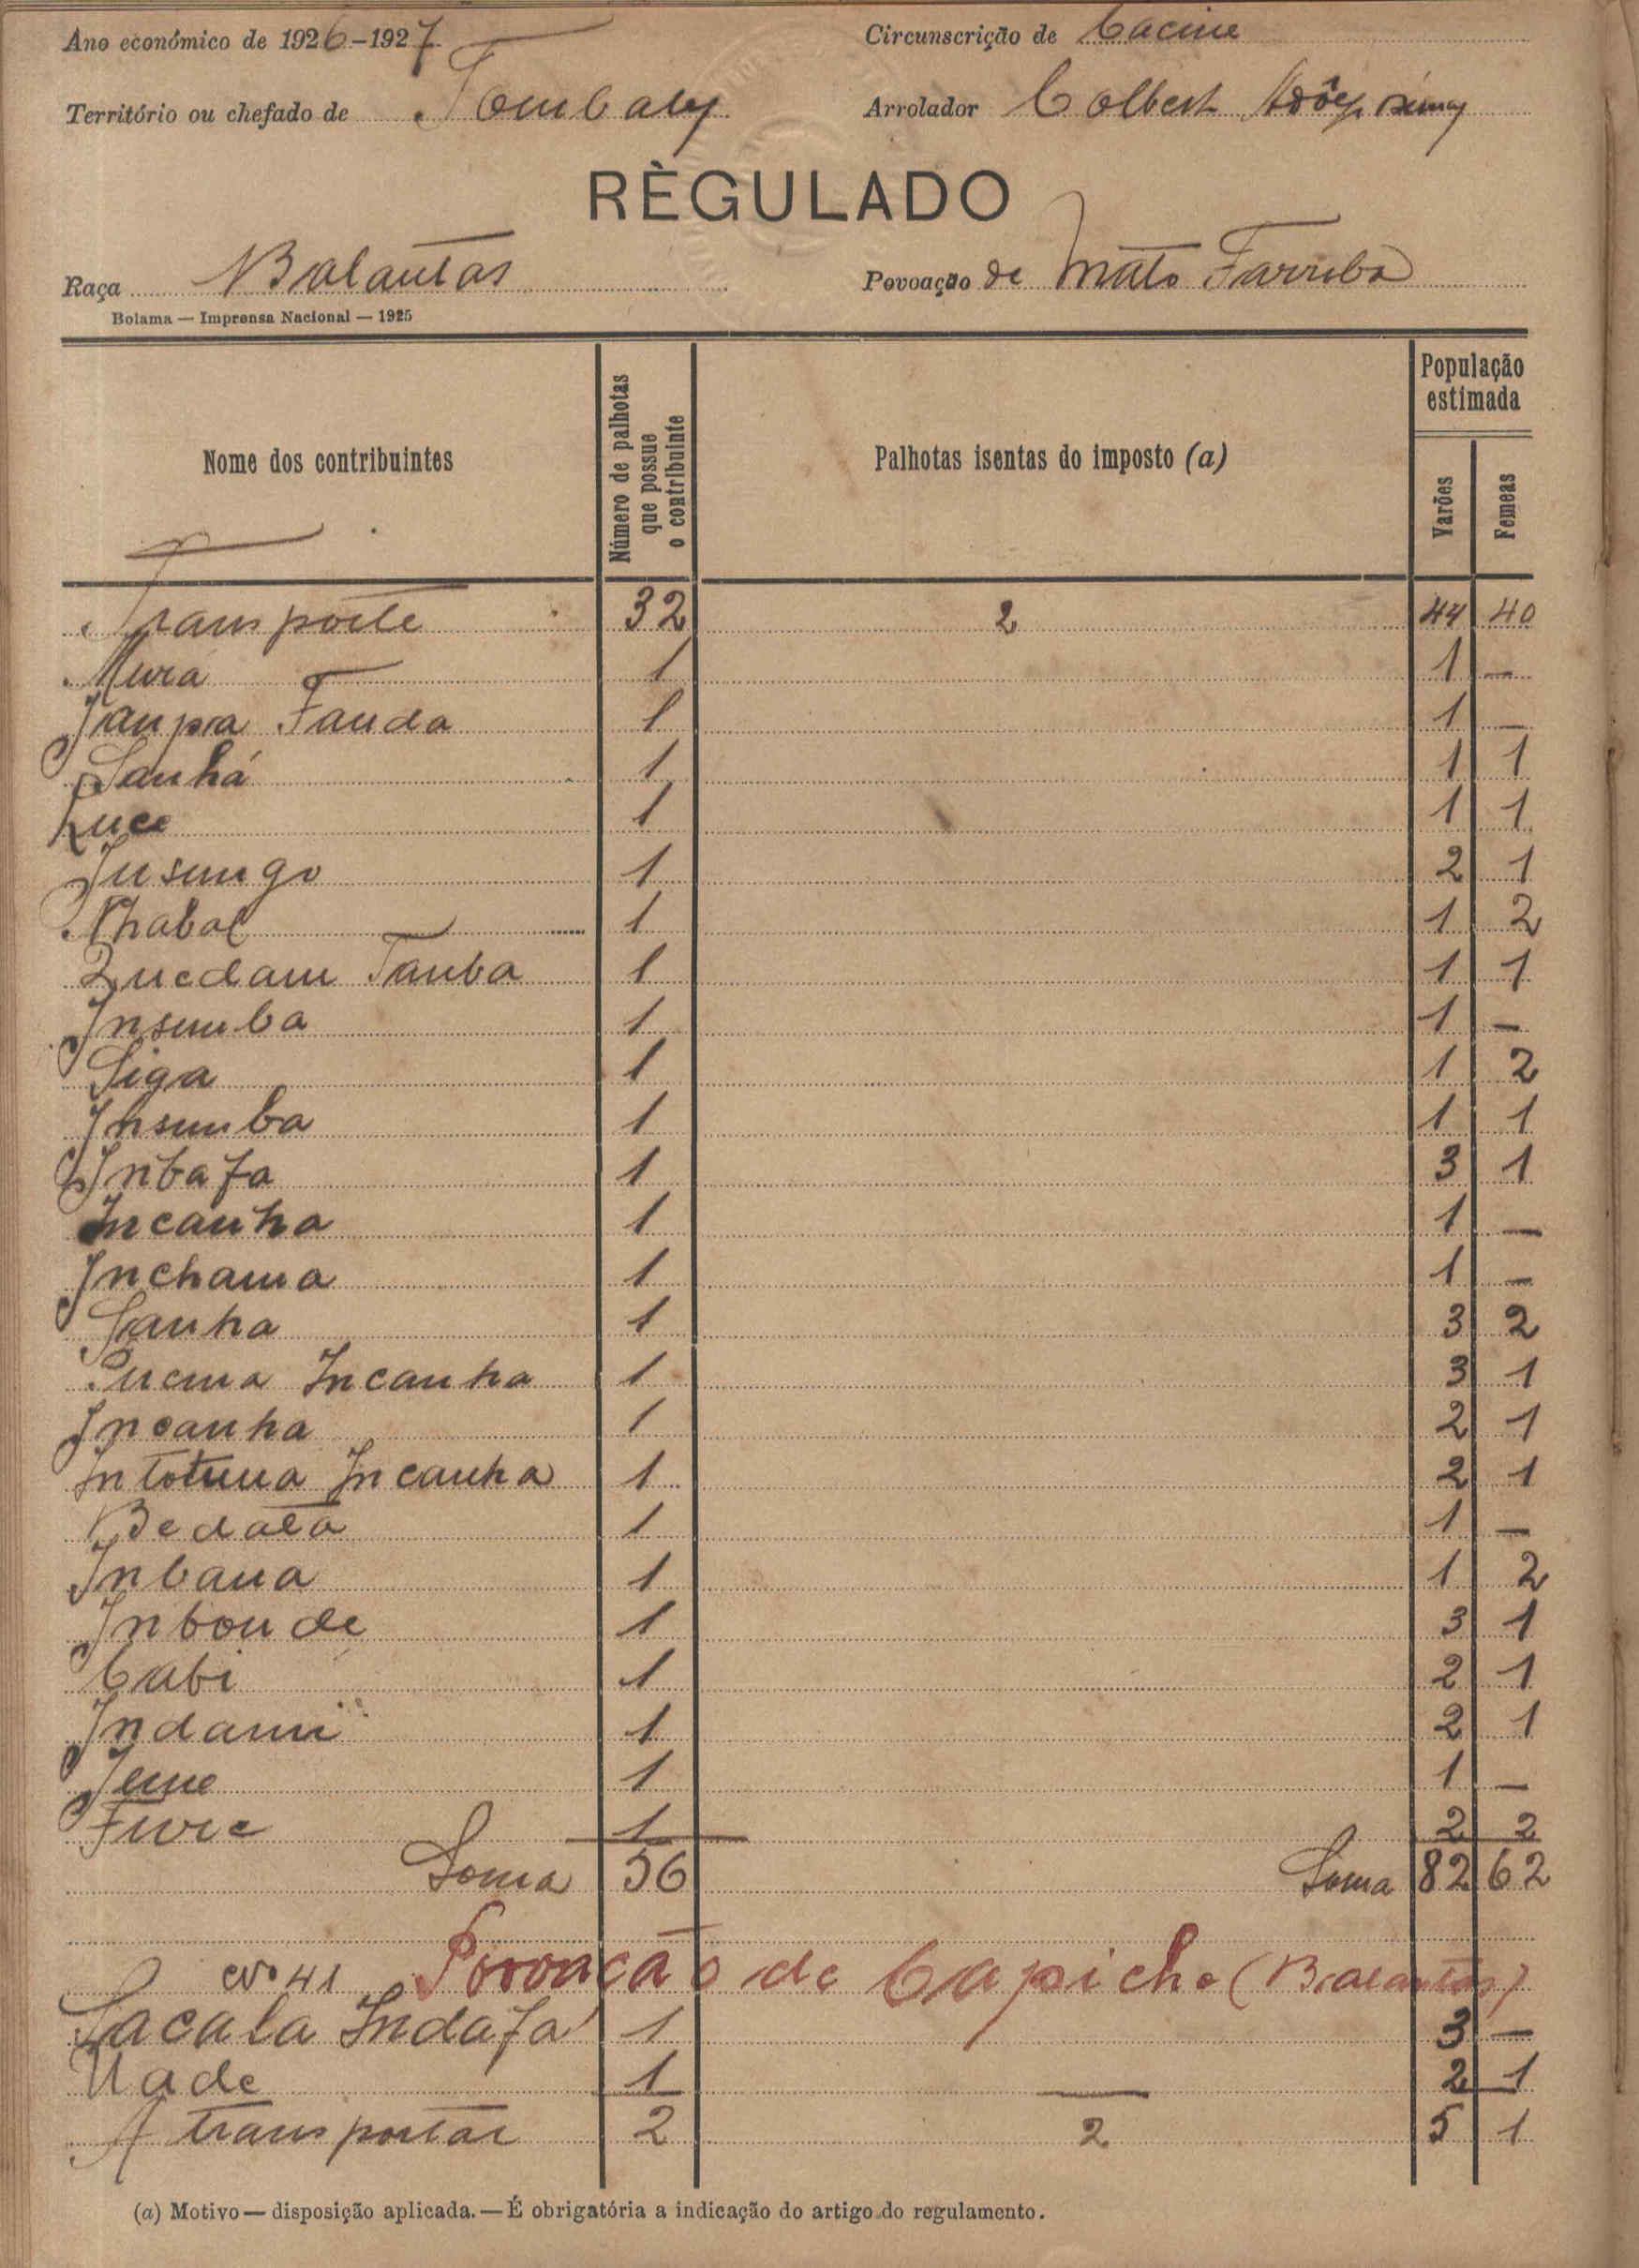 Ano económico de 1926-1927. Circunscrição de Cacine
Território ou chefado de Tombaly Arrolador Colbert
RÈGULADO
Raça Balantas Povoação de Mato Farroba
Bolama — Imprensa Nacional — 1925
Nome dos contribuintes
Número de palhotas que possue o contribuinte
Palhotas isentas do imposto (a)
População estimada
Varões Femeas
Transporte 32 2 44 40
1 1 —
Fanda 1 1 —
Sanhá 1 1 1
Luce 1 1 1
Jusungo 1 2 1
Nhabal 1 1 2
Quedam Tamba 1 1 1
Insumba 1 1 —
Siga 1 1 2
Insumba 1 1 1
Inbafa 1 3 1
Incanha 1 1 —
Inchama 1 1 —
Sanha 1 3 2
Incanha 1 3 1
Incanha 1 2 1
Intotuna Incanha 1 2 1
Bedata 1 1 —
Inbana 1 1 2
Inbonde 1 3 1
Cabi 1 2 1
Indami 1 2 1
Jeme 1 1 —
1 2 2
Soma 56 Soma 82 62
Nº 41 Povoação de Capiche (Balantas)
Lacala Indafá 1 3 —
Uade 1 — 2 1
A transportar 2 2 5 1
(a) Motivo — disposição aplicada. — É obrigatória a indicação do artigo do regulamento.